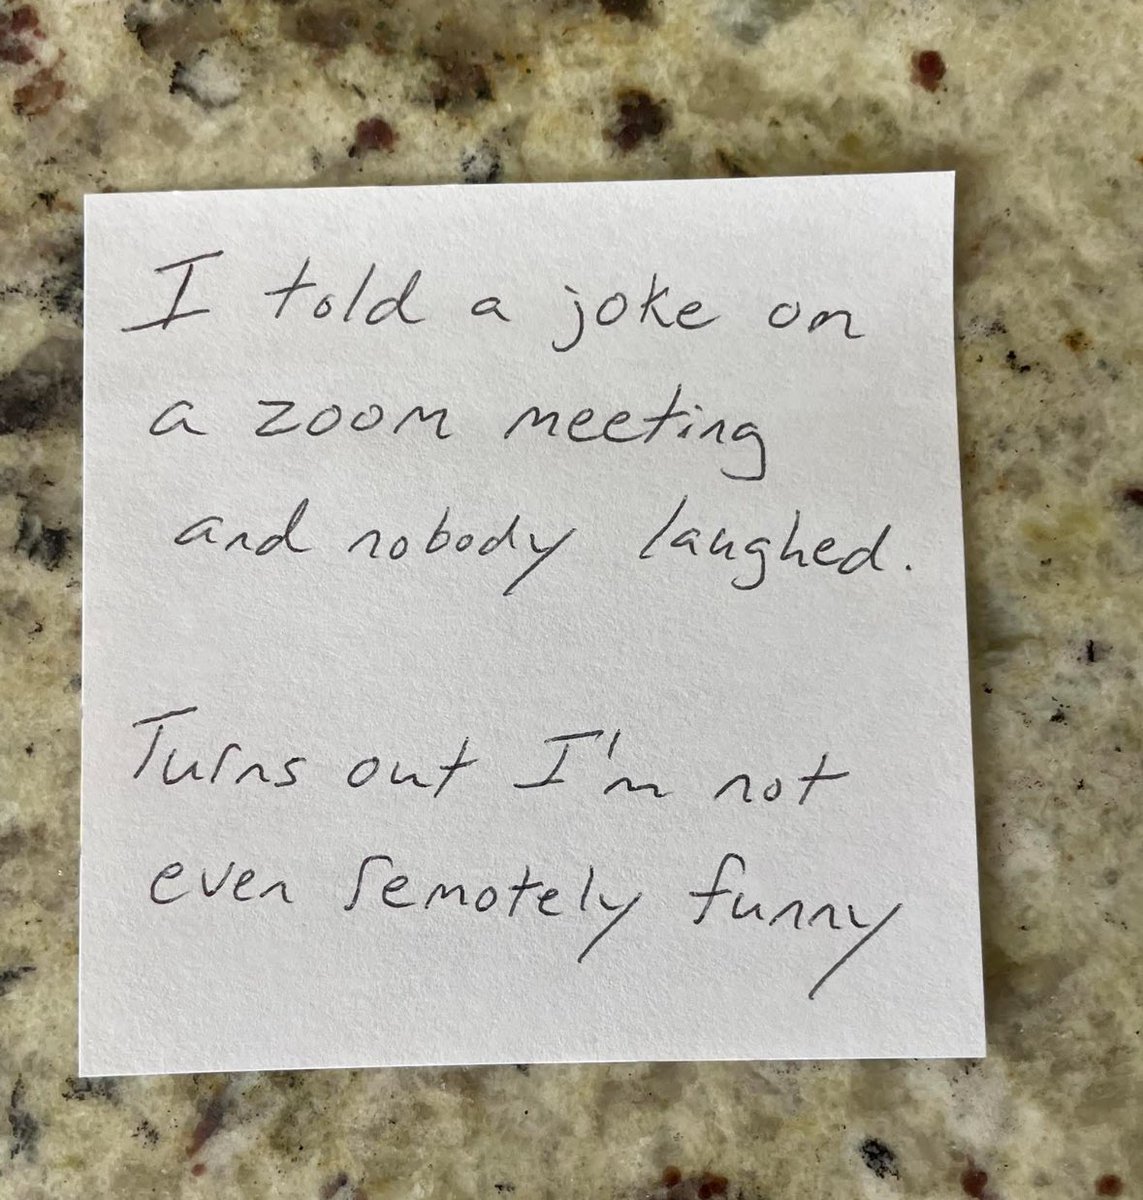 I told a joke on
a zoom meeting
and nobody laughed.
Turns out I'm not
even remotely funny